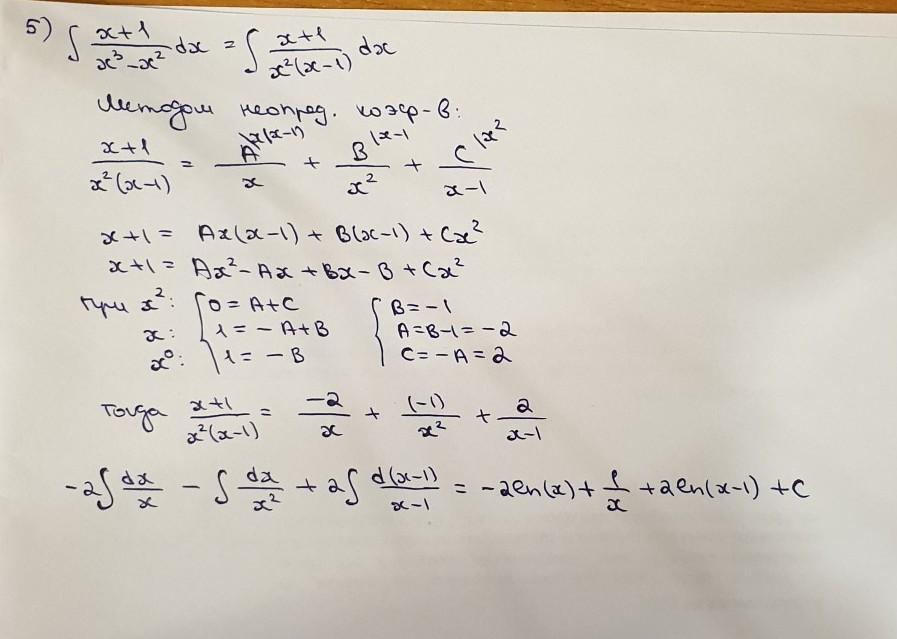 5) ∫ (x+1)/(x³-x²) dx = ∫ (x+1)/(x²(x-1)) dx
Методом неопред. коэф-в:
(x+1)/(x²(x-1)) = A\x(x-1)/x + B\x-1/x² + C\x²/(x-1)
x+1 = Ax(x-1) + B(x-1) + Cx²
x+1 = Ax² - Ax + Bx - B + Cx²
При x²: { 0 = A+C { B = -1
x: 1 = -A+B A = B-1 = -2
x⁰: 1 = -B C = -A = 2
Тогда (x+1)/(x²(x-1)) = -2/x + (-1)/x² + 2/(x-1)
-2∫ dx/x - ∫ dx/x² + 2∫ d(x-1)/(x-1) = -2ln(x) + 1/x + 2ln(x-1) + C